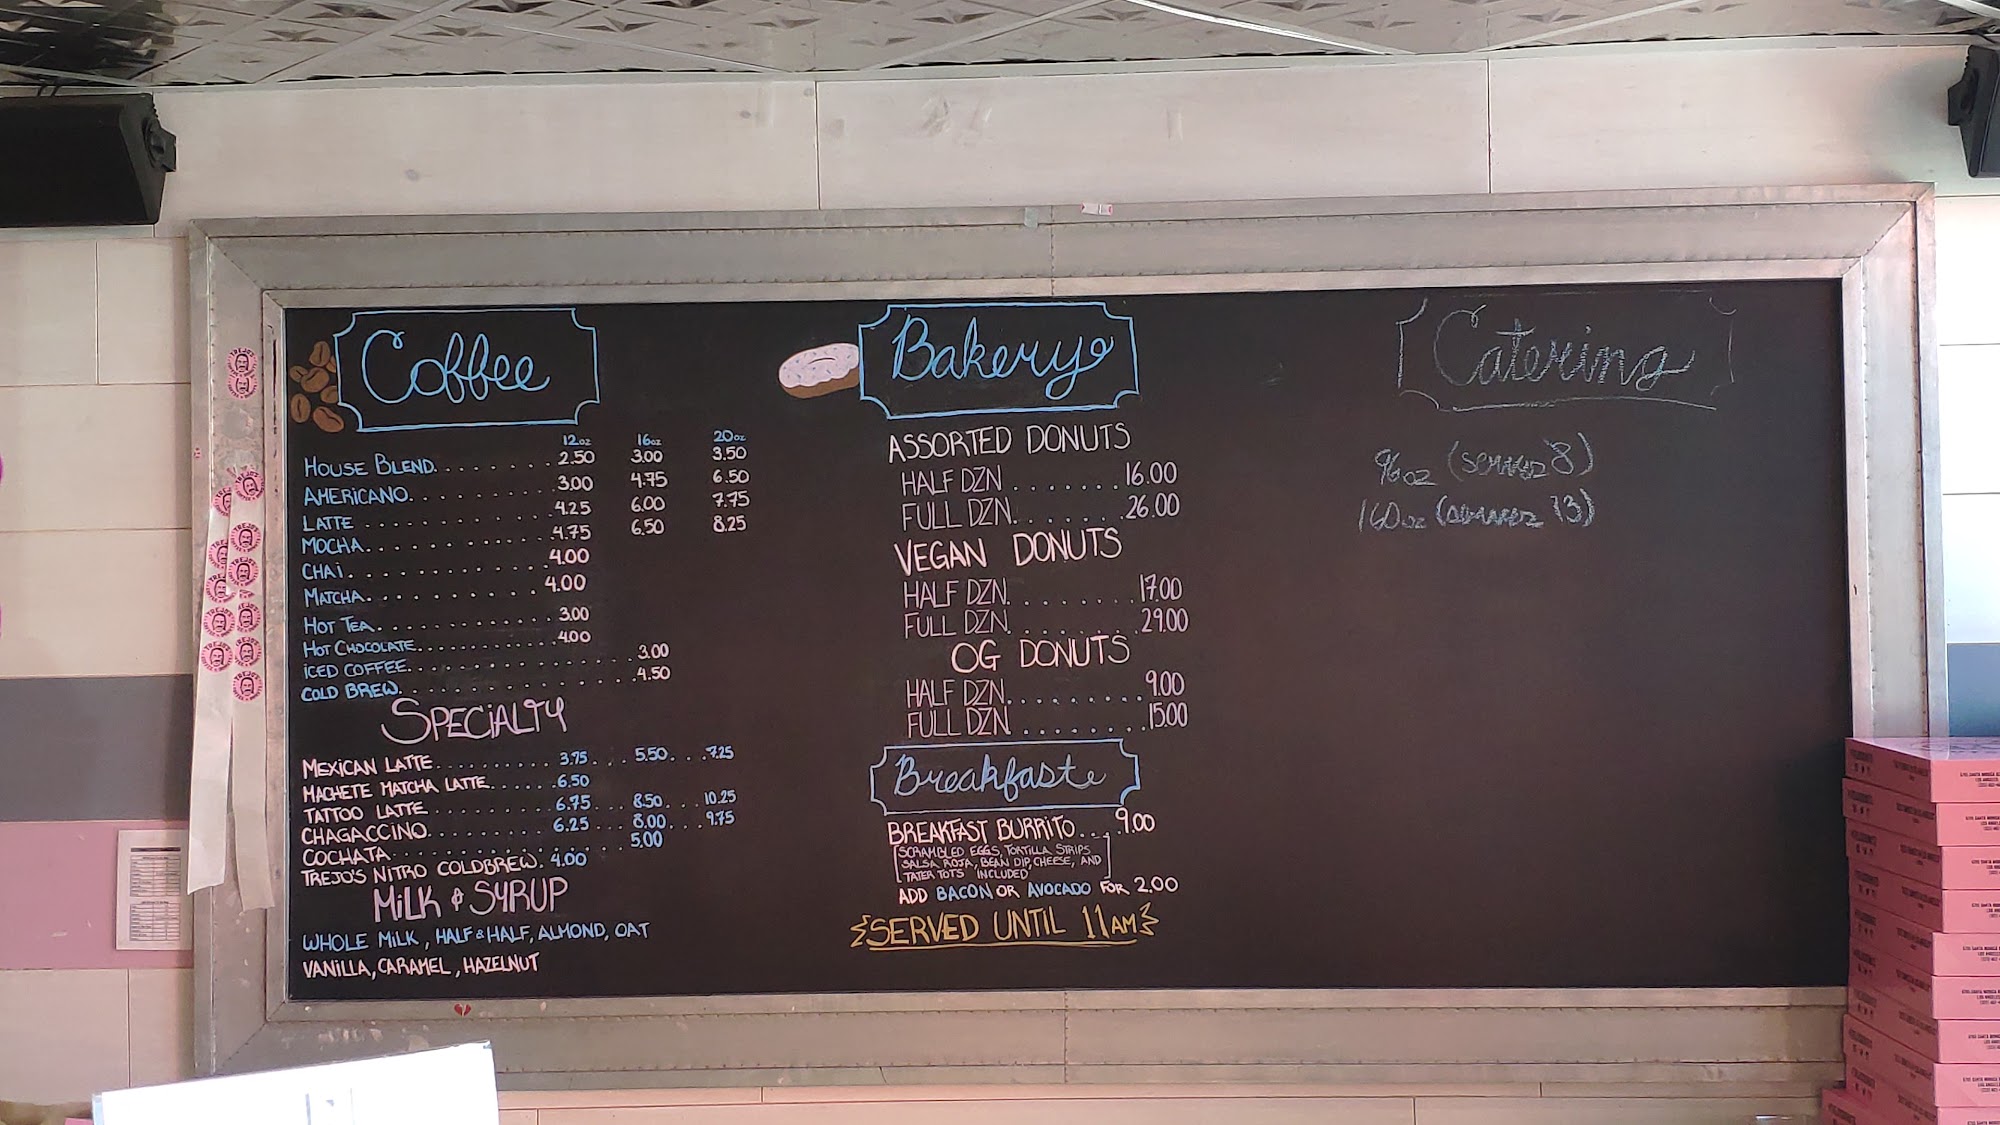 Coffee
12oz 16oz 20oz
HOUSE BLEND. . . . . . . . 2.50 3.00 3.50
AMERICANO. . . . . . . . . . 3.00 4.75 6.50
LATTE . . . . . . . . . . . . 4.25 6.00 7.75
MOCHA. . . . . . . . . . . . 4.75 6.50 8.25
CHAI. . . . . . . . . . . . . 4.00
MATCHA. . . . . . . . . . . . 4.00
HOT TEA. . . . . . . . . . . . 3.00
HOT CHOCOLATE. . . . . . . . . 4.00
ICED COFFEE. . . . . . . . . . . . . . 3.00
COLD BREW. . . . . . . . . . . . . . . 4.50
SPECIALTY
MEXICAN LATTE. . . . . . . . . 3.75. . . 5.50. . . 7.25
MACHETE MATCHA LATTE. . . . . .6.50
TATTOO LATTE . . . . . . . . . 6.75. . . 8.50. . . 10.25
CHAGACCINO. . . . . . . . . 6.25 . . . 8.00. . . 9.75
COCHATA. . . . . . . . . . . . . . . 5.00
TREJO'S NITRO COLDBREW. 4.00
MILK & SYRUP
WHOLE MILK, HALF & HALF, ALMOND, OAT
VANILLA, CARAMEL, HAZELNUT
Bakery
ASSORTED DONUTS
HALF DZN . . . . . . . 16.00
FULL DZN. . . . . . . 26.00
VEGAN DONUTS
HALF DZN. . . . . . . . 17.00
FULL DZN. . . . . . . . 29.00
OG DONUTS
HALF DZN. . . . . . . . . 9.00
FULL DZN . . . . . . . . 15.00
Breakfast
BREAKFAST BURRITO. . . . 9.00
SCRAMBLED EGGS, TORTILLA STRIPS
SALSA ROJA, BEAN DIP, CHEESE, AND
TATER TOTS INCLUDED
ADD BACON OR AVOCADO FOR 2.00
SERVED UNTIL 11AM
Catering
96oz (serves 8)
160oz (serves 13)